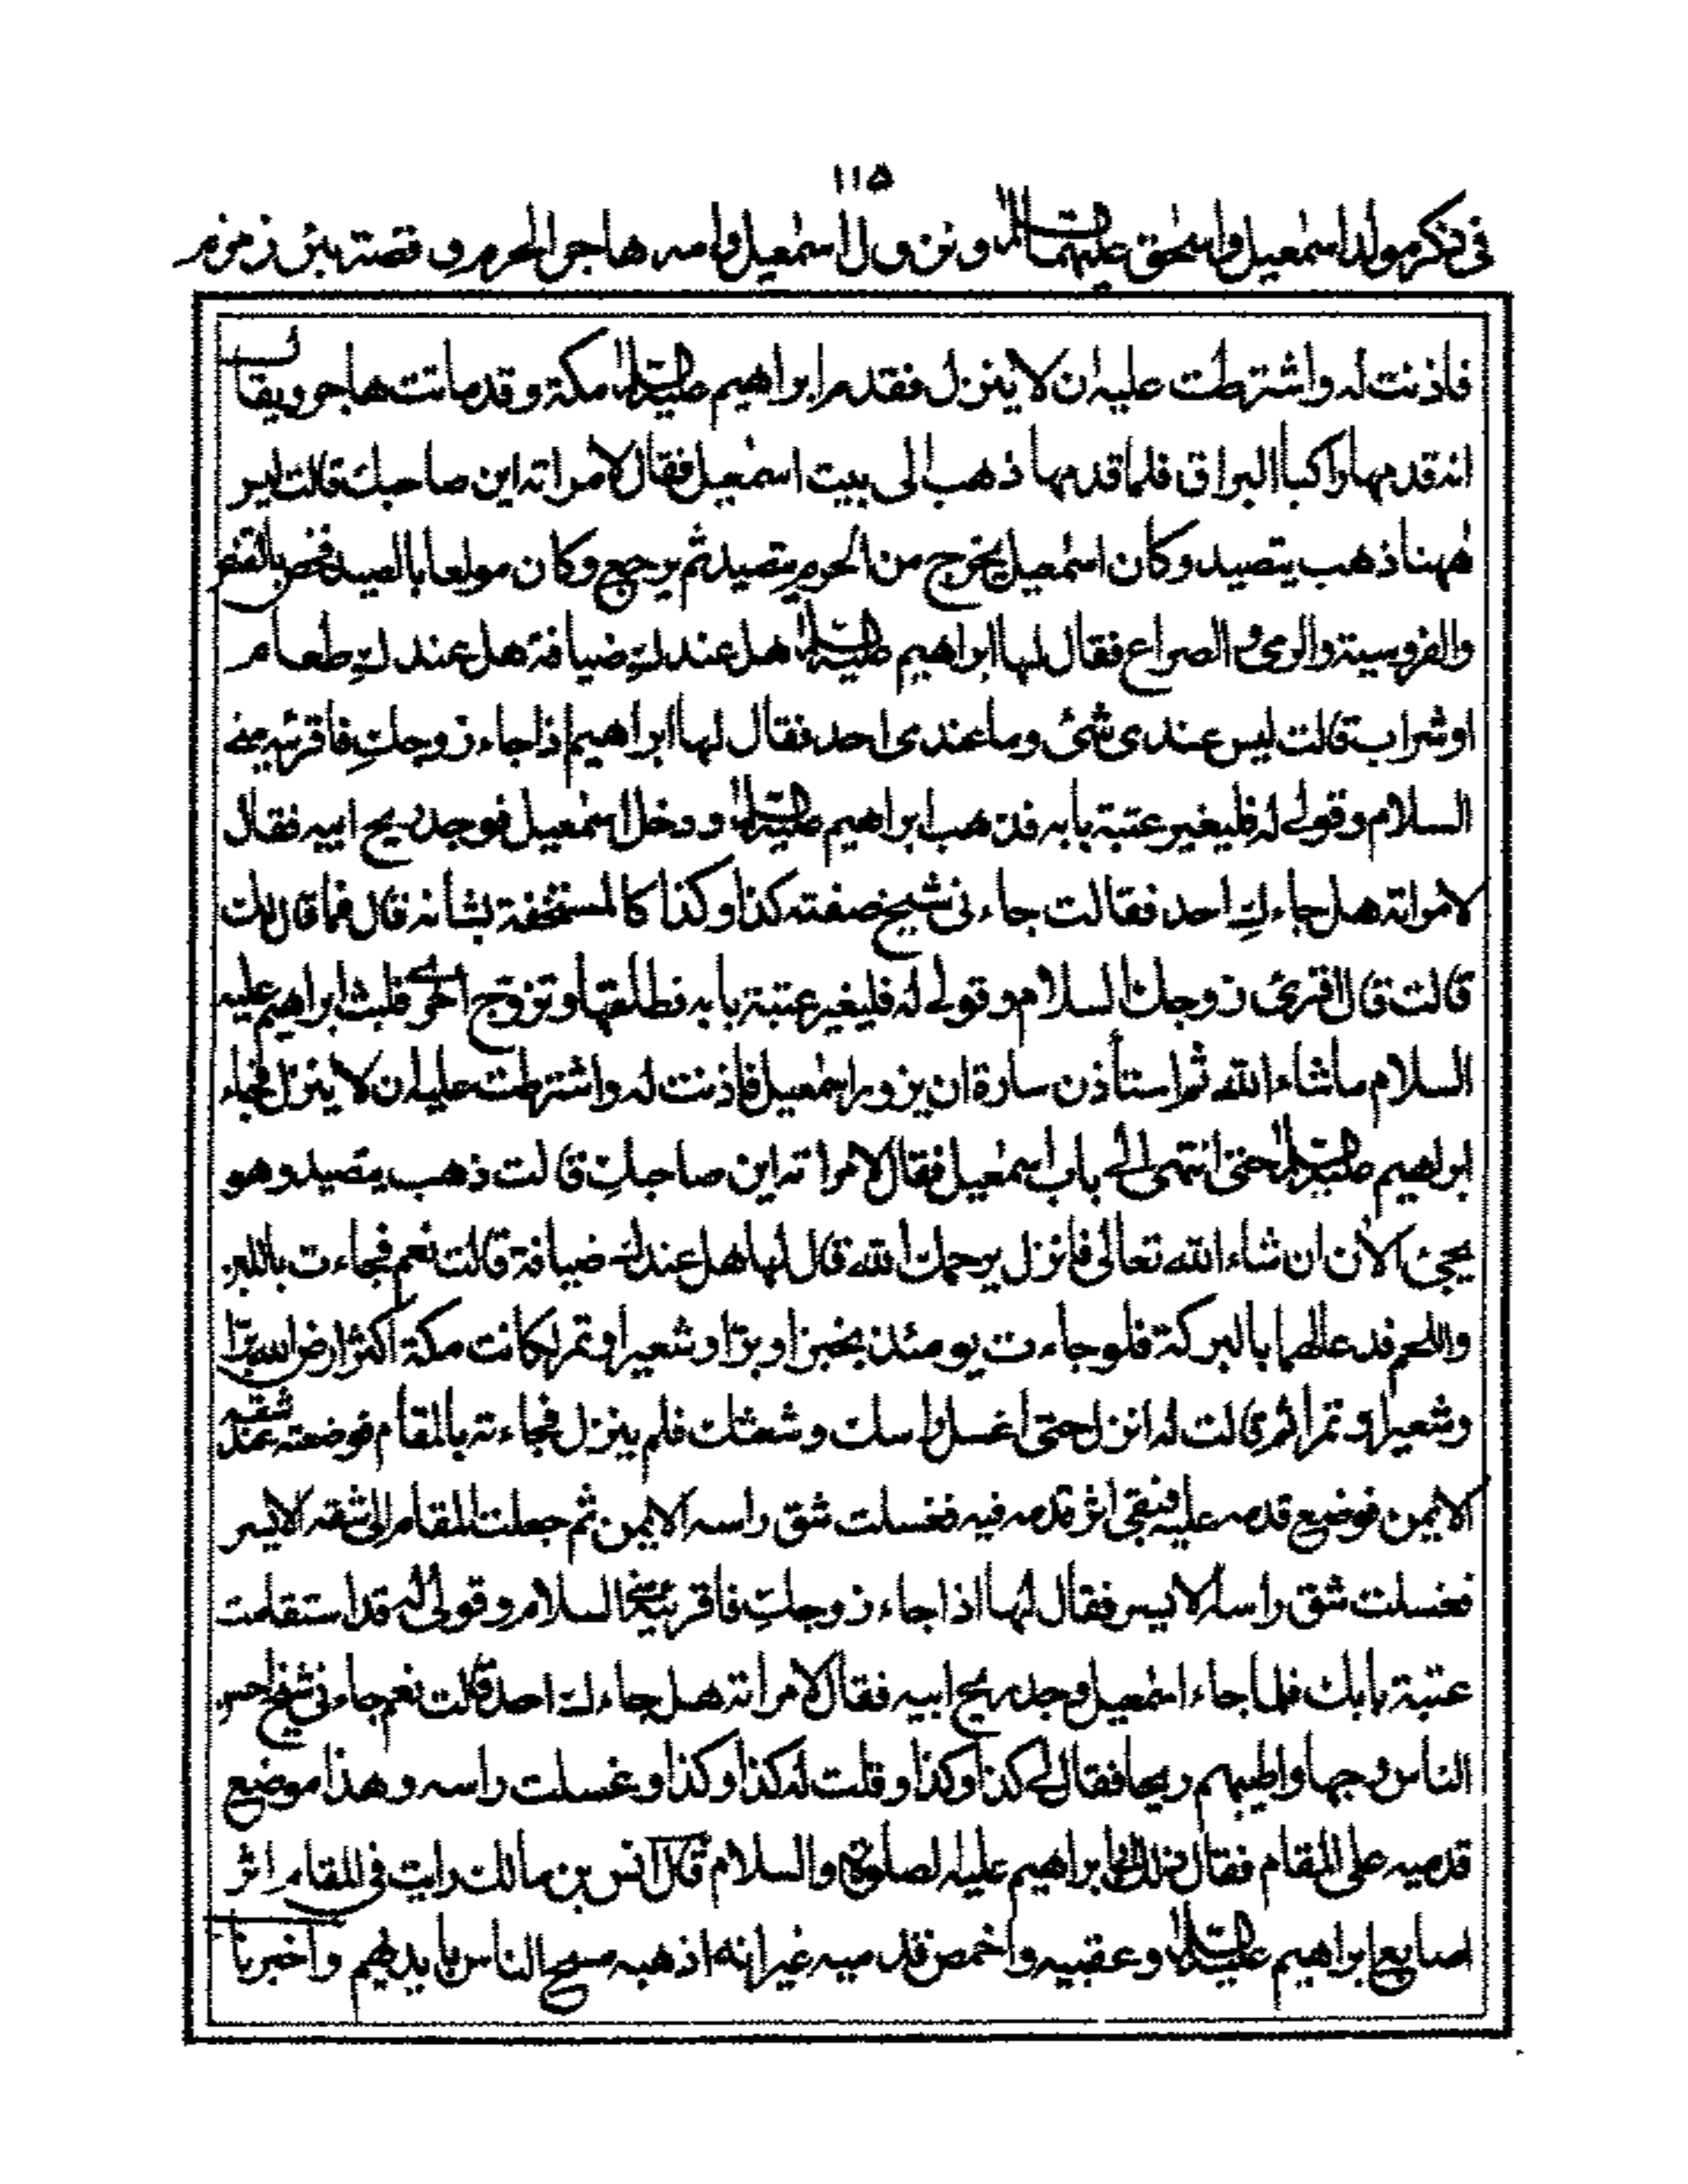 ۱۱۵
فی ذکر مولد اسمٰعیل واسحٰق علیهما السلام ونزول اسمٰعیل وامه هاجر الحرم و قصة بئر زمزم
فاذنت له واشترطت علیه ان لا ینزل فقدم ابراهیم علیه السلام مکة وقد ماتت هاجر ویقال
انه قدمها راکبا البراق فلما قدمها ذهب الی بیت اسمٰعیل فقال لامراته این صاحبك قالت لیس
هٰهنا ذهب یتصید وکان اسمٰعیل یخرج من الحرم یتصید ثم یرجع وکان مولعا بالصید فخص بالقنص
والفروسیة والرمی والصراع فقال لها ابراهیم علیه السلام هل عندكِ ضیافة هل عندكِ طعام
او شراب قالت لیس عندی شئ وما عندی احد فقال لها ابراهیم اذا جاء زوجكِ فاقرئیه منی
السلام وقولی له فلیغیر عتبة بابه فذهب ابراهیم علیه السلام ودخل اسمٰعیل فوجد ریح ابیه فقال
لامراته هل جاءكِ احد فقالت جاءنی شیخ صفته کذا وکذا کالمستخفة بشانه قال فما قال لك
قالت قال اقرئی زوجك السلام وقولی له فلیغیر عتبة بابه فطلقها وتزوج اخری فلبث ابراهیم علیه
السلام ماشاء الله ثم استأذن سارة ان یزور اسمٰعیل فاذنت له واشترطت علیه ان لا ینزل فجاء
ابراهیم علیه السلام حتی انتهی الی باب اسمٰعیل فقال لامراته این صاحبكِ قالت ذهب یتصید وهو
یجئ الاٰن ان شاء الله تعالی فانزل یرحمك الله قال لها هل عندك ضیافة قالت نعم فجاءت باللبن
واللحم فدعا لهما بالبرکة فلو جاءت یومئذ بخبز او برّ او شعیر او تمر لکانت مکة اکثر ارض الله برّا
وشعیرا وتمرا ثم قالت له انزل حتی اغسل راسك وشعثك فلم ینزل فجاءته بالمقام فوضعته عند شقه
الایمن فوضع قدمه علیه فبقی اثر قدمه فیه فغسلت شق راسه الایمن ثم جعلت المقام الی شقه الایسر
فغسلت شق راسه الایسر فقال لها اذا جاء زوجكِ فاقرئیه منی السلام وقولی له قد استقامت
عتبة بابك فلما جاء اسمٰعیل وجد ریح ابیه فقال لامراته هل جاءك احد قالت نعم جاءنی شیخ احسن
الناس وجها واطیبهم ریحا فقال لی کذا وکذا وقلت له کذا وکذا وغسلت راسه وهذا موضع
قدمیه علی المقام فقال ذلك ابراهیم علیه الصلوٰة والسلام قال انس بن مالك رایت فی المقام اثر
اصابع ابراهیم علیه السلام وعقبیه واخمص قدمیه غیر انه اذهبه مسح الناس بایدیهم واخبرنا